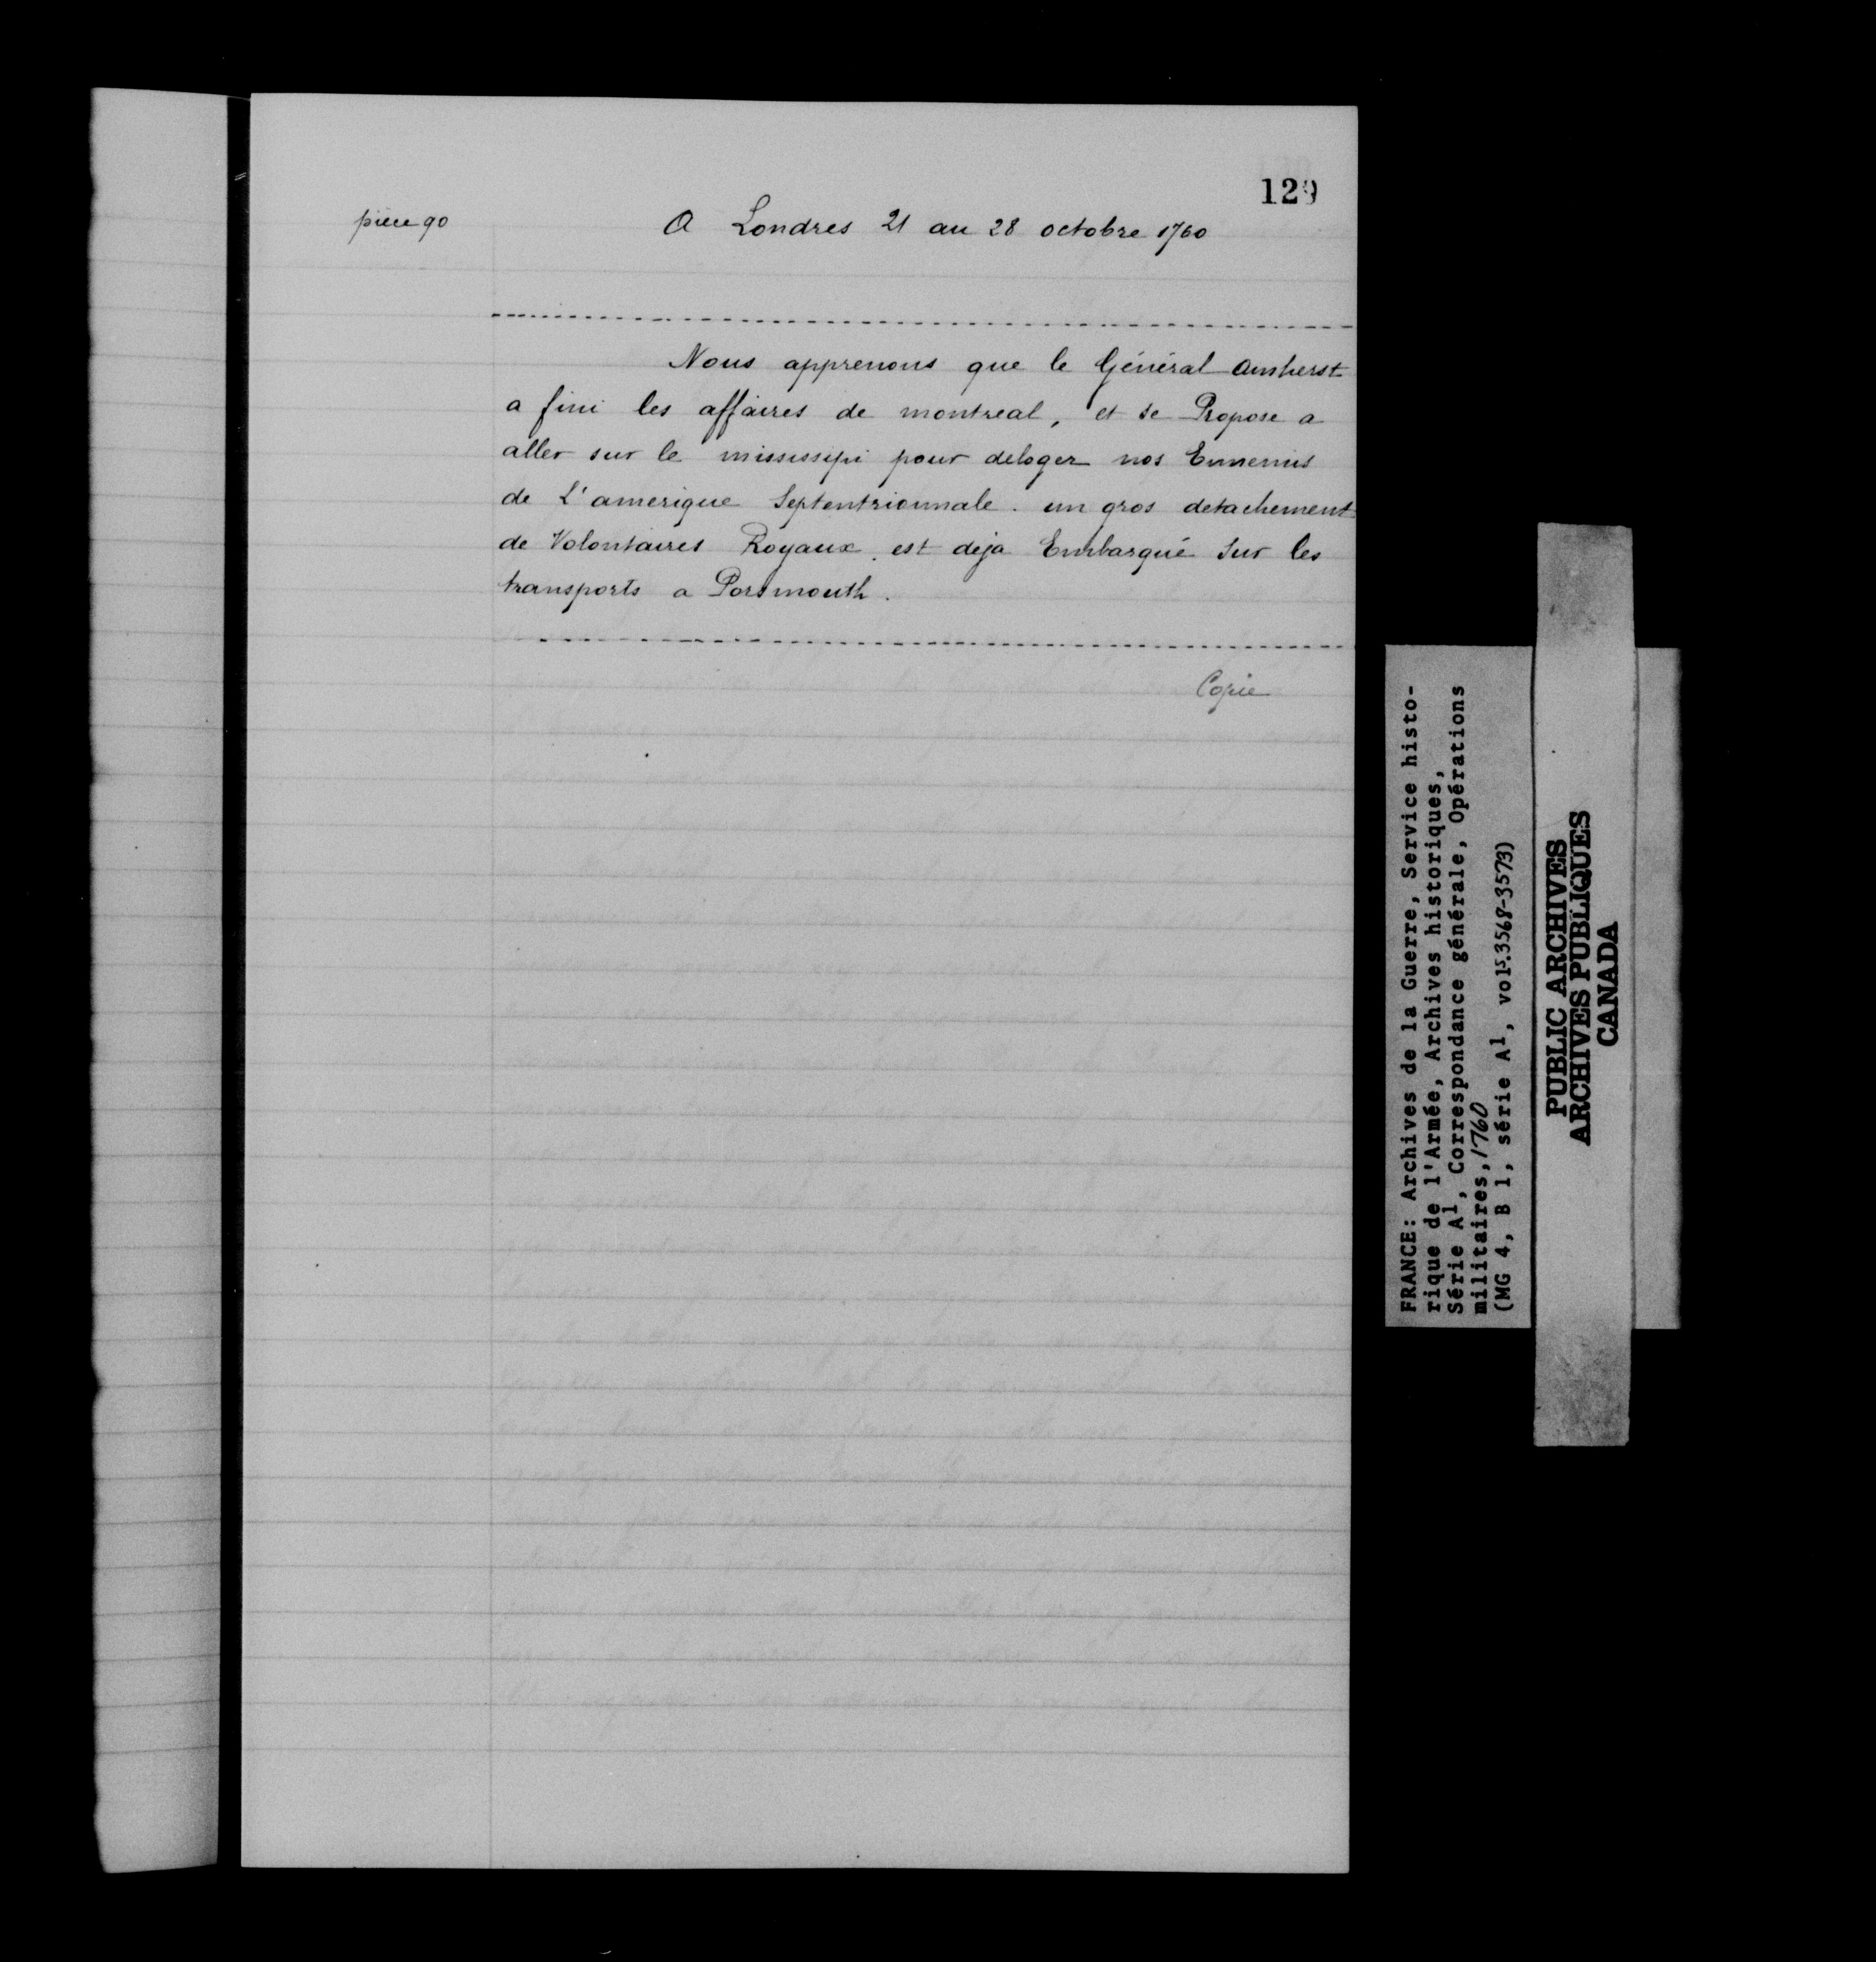 129
pièce 90
A Londres 21 au 28 octobre 1760
Nous apprenons que le Général Amherst
a fini les affaires de montreal, et se Propose a
aller sur le mississipi pour deloger nos Ennemis
de L'amerique Septentrionnale. un gros detachement
de Volontaires Royaux. est deja Embarqué Sur les
transports a Porsmouth.
Copie
FRANCE: Archives de la Guerre, Service histo-
rique de l'Armée, Archives historiques,
Série A1, Correspondance générale, Opérations
militaires, 1760
(MG 4, B 1, série A1, vols. 3568-3573)
PUBLIC ARCHIVES
ARCHIVES PUBLIQUES
CANADA